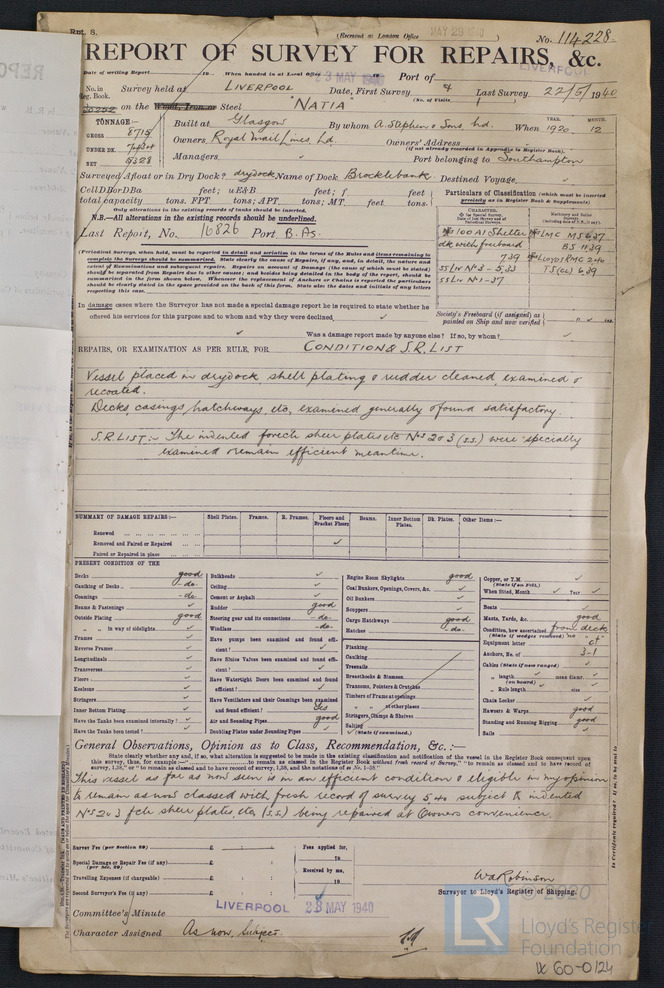 Rpt. 8.
(Received at London Office MAY 29 1940 )
No. 114228
REPORT OF SURVEY FOR REPAIRS, &c.
Date of writing Report 19 When handed in at Local Office 23 MAY 1940 Port of LIVERPOOL
No. in Reg. Book. Survey held at LIVERPOOL Date, First Survey Last Survey 22/5/1940
(No. of Visits 1 )
on the Wood, Iron or Steel "NATIA"
TONNAGE:— Built at Glasgow By whom A. Stephen & Sons Ld. When 1920 12
YEAR. MONTH.
GROSS 8715
Owners Royal Mail Lines Ld. Owners' Address
(if not already recorded in Appendix to Register Book).
UNDER DK.
NET 5328
Managers Port belonging to Southampton
Surveyed Afloat or in Dry Dock? drydock Name of Dock Brocklebank Destined Voyage
Cell DB or DBa feet; uE&B feet; f feet
total capacity tons. FPT tons; APT tons; MT feet tons.
Only alterations in the existing records of tanks should be inserted.
N.B.—All alterations in the existing records should be underlined.
Last Report, No. 16826 Port B. As.
Particulars of Classification (which must be inserted precisely as in Register Book & Supplements)
100 A1 Shelter
dk with freeboard
7,39
SS Liv No 3 - 5,33
SS Liv No 1 - 37
LMC MS 6,37
BS 11,39
LLOYDS RMC 2,40
TS (CL) 6,39
(Periodical Surveys, when held, must be reported in detail and seriatim in the terms of the Rules and items remaining to complete the Surveys should be summarised.
In damage cases where the Surveyor has not made a special damage report he is required to state whether he
offered his services for this purpose and to whom and why they were declined
Society's Freeboard (if assigned) as painted on Ship and now verified
Was a damage report made by anyone else? If so, by whom?
REPAIRS, OR EXAMINATION AS PER RULE, FOR CONDITION & S.R. LIST
Vessel placed in drydock, shell plating & rudder cleaned, examined &
recoated.
Decks, casings, hatchways, etc, examined generally & found satisfactory.
S.R. LIST:- The indented forecle sheer plates etc Nos 2 & 3 (s.s.) were specially
examined & remain efficient meantime.
SUMMARY OF DAMAGE REPAIRS:—
Shell Plates. Frames. R. Frames. Floors and Bracket Floors Beams. Inner Bottom Plates. Dk. Plates. Other Items:—
Renewed
Removed and Faired or Repaired
Faired or Repaired in place
PRESENT CONDITION OF THE
Decks good
Caulking of Decks do
Coamings do
Beams & Fastenings
Outside Plating good
" " in way of sidelights
Frames
Reverse Frames
Longitudinals
Transverses
Floors
Keelsons
Stringers
Inner Bottom Plating
Have the Tanks been examined internally?
Have the Tanks been tested?
Bulkheads
Ceiling
Cement or Asphalt
Rudder good
Steering gear and its connections do
Windlass do
Have pumps been examined and found efficient?
Have Sluice Valves been examined and found efficient?
Have Watertight Doors been examined and found efficient?
Have Ventilators and their Coamings been examined and found efficient? yes
Air and Sounding Pipes good
Doubling Plates under Sounding Pipes
Engine Room Skylights good
Coal Bunkers, Openings, Covers, &c.
Oil Bunkers
Scuppers
Cargo Hatchways good
Hatches do
Planking
Caulking
Treenails
Breasthooks & Stemson
Transoms, Pointers & Crutches
Timbers of Frame at openings
" " at other places
Stringers, Clamps & Shelves
Salting (State if examined.)
Copper, or Y.M. (State if on Felt.)
When fitted, Month Year
Boats
Masts, Yards, &c. good
Condition, how ascertained from deck
(State if wedges removed) no
Equipment letter
Anchors, No. of 3-1
Cables (State if now ranged)
" length mean diamr.
(on board)
" Rule length size
Chain Locker
Hawsers & Warps good
Standing and Running Rigging good
Sails
General Observations, Opinion as to Class, Recommendation, &c.:—
This vessel as far as now seen is in an efficient condition & eligible in my opinion
to remain as now classed with fresh record of survey 5,40 subject to indented
Nos 2 & 3 fcle sheer plates, etc, (s.s.) being repaired at Owners convenience.
Survey Fee (per Section 29) £ : :
Special Damage or Repair Fee (if any) £ : :
(per Sec. 29)
Travelling Expenses (if chargeable) £ : :
Second Surveyor's Fee (if any) £ : :
Fees applied for,
19
Received by me,
19
W.D. Robinson
Surveyor to Lloyd's Register of Shipping.
Committee's Minute LIVERPOOL 28 MAY 1940
Character Assigned As now, Subject.
LR © 2020
Lloyd's Register
Foundation